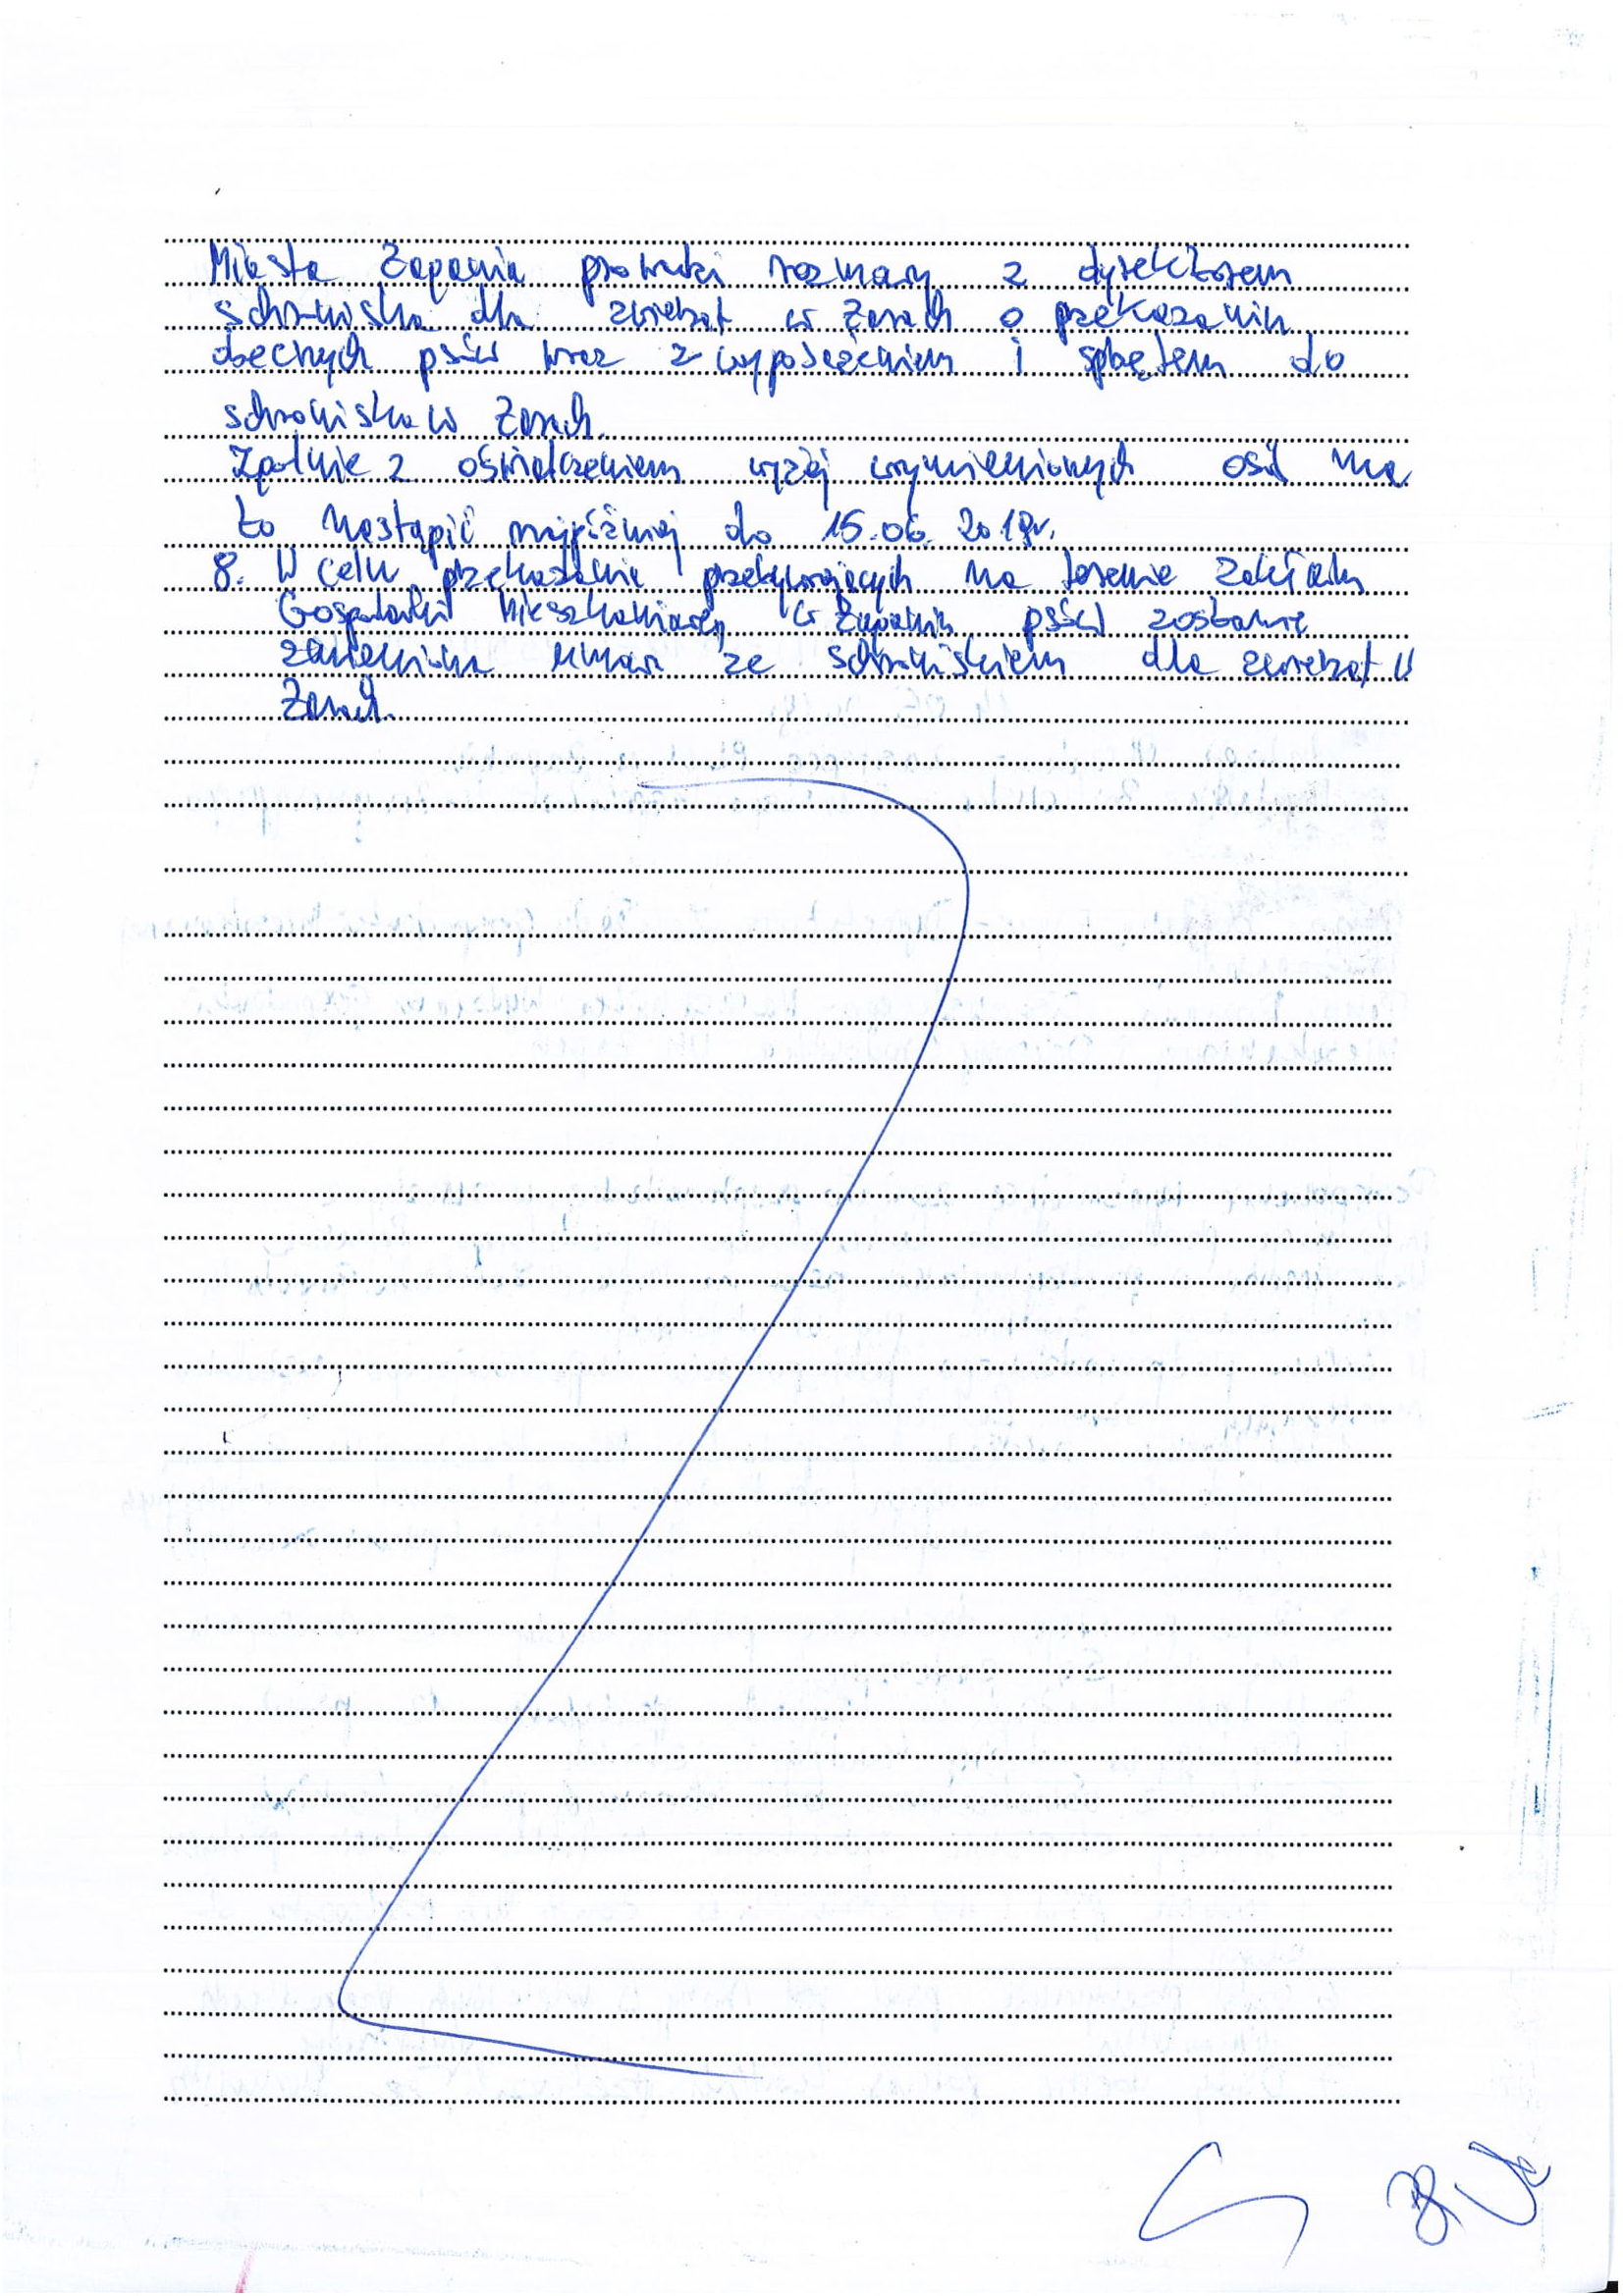 Miasta Żagania prowadzi rozmowy z dyrektorem
schroniska dla zwierząt w Żarach o przekazaniu
obecnych psów wraz z wyposażeniem i sprzętem do
schroniska w Żarach.
Zgodnie z oświadczeniem wyżej wymienionych osób ma
to nastąpić najpóźniej do 15.06.2018r.
8. W celu przekazania przebywających na terenie Zakładu
Gospodarki Mieszkaniowej w Żaganiu psów zostanie
zawarta umowa ze schroniskiem dla zwierząt w
Żarach.